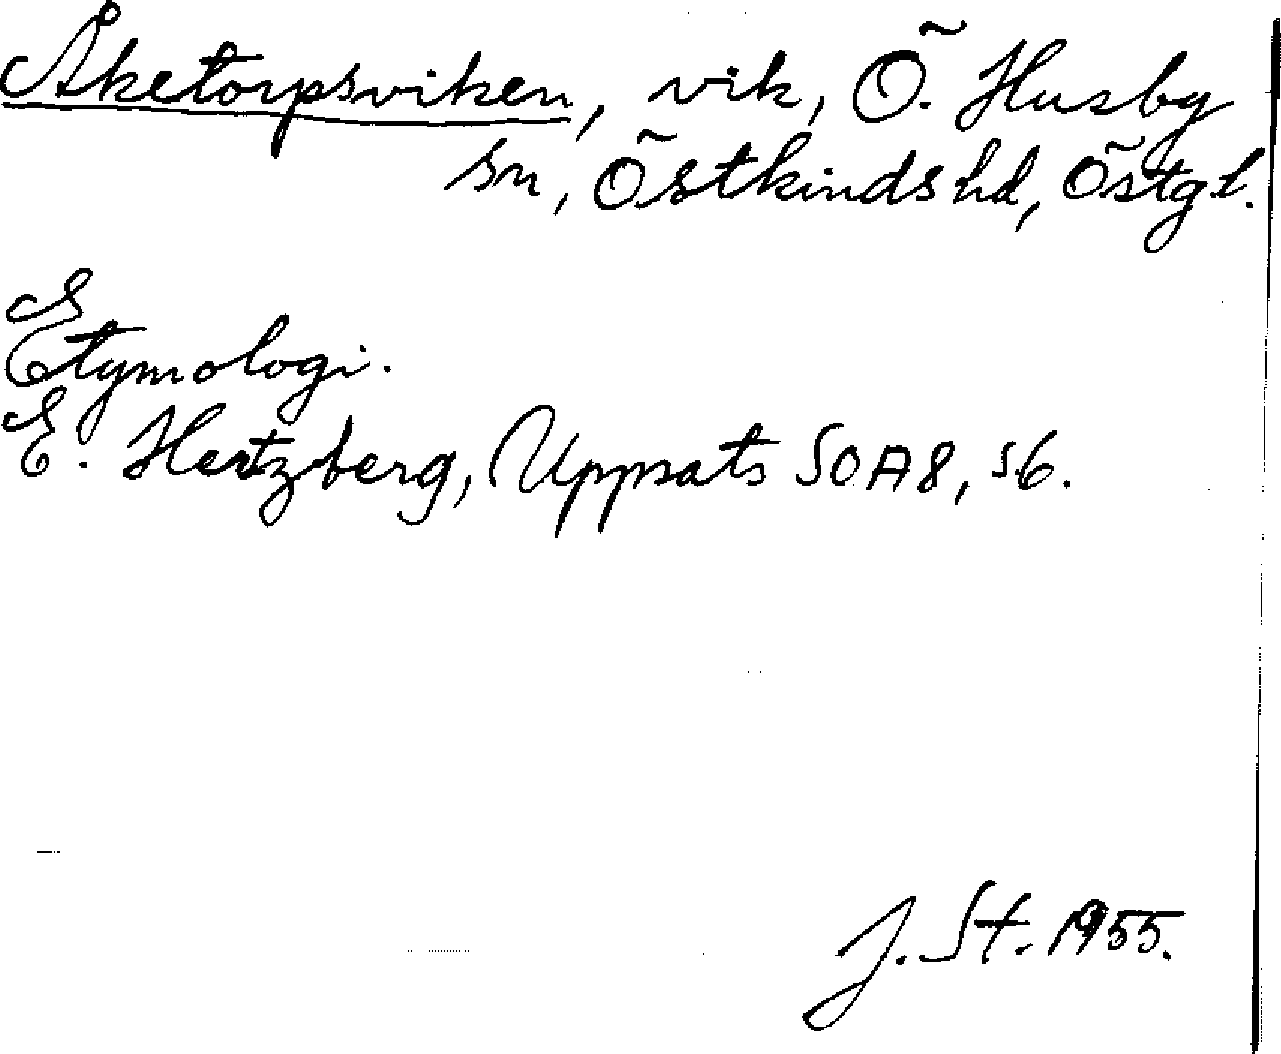 Åketorpsviken, vik, Ö. Husby
sn, Östkinds hd, Östgl.
Etymologi.
E. Hertzberg, Uppsats SOA8, s6.
J. St. 1955.